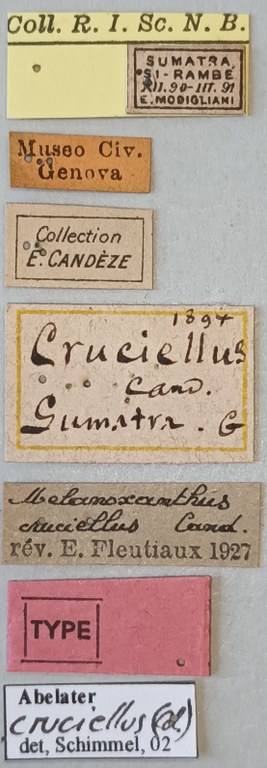 Coll. R. I. Sc. N. B.
SUMATRA
SI-RAMBÉ
XII.90-III.91
E. MODIGLIANI
Museo Civ.
Genova
Collection
E. CANDÈZE
1894
Cruciellus
Cand.
Sumatra. G
Melanoxanthus
cruciellus Cand.
rév. E. Fleutiaux 1927
TYPE
Abelater
cruciellus (Cd)
det, Schimmel, 02